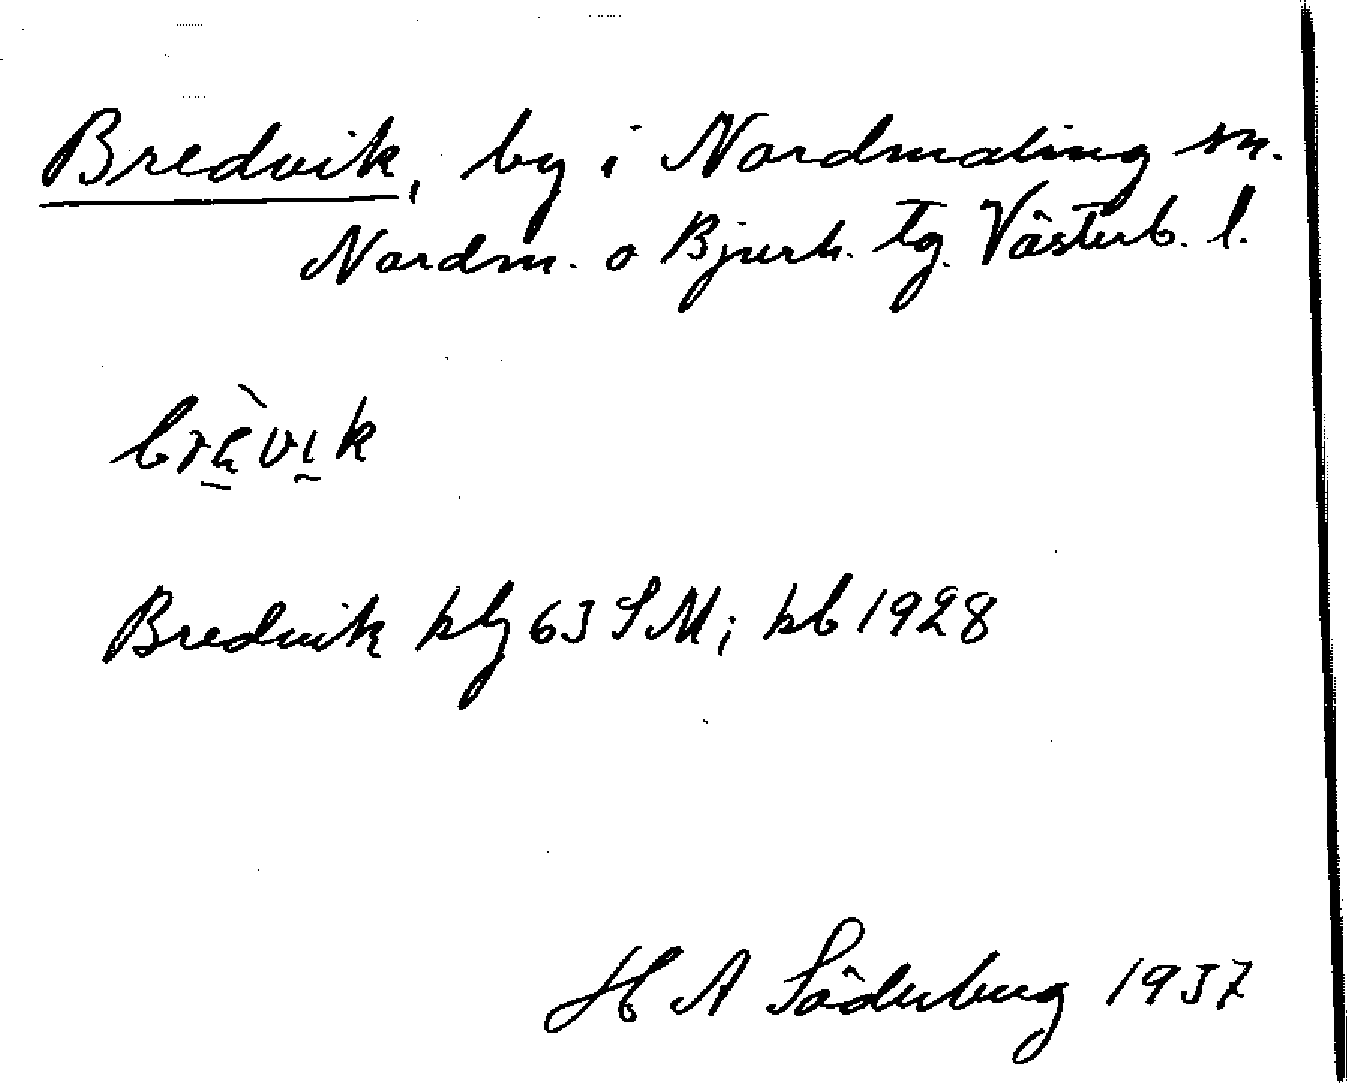 Bredvik, by i Nordmaling sn.
Nordm. o Bjurh. tg. Västerb. l.
Bredvik kbg 63 SM; kb 1928
H A Söderberg 1937